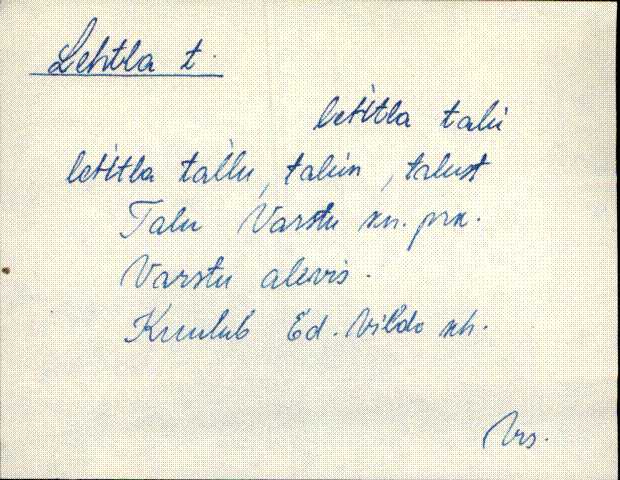 Lehtla t.
letitla talu
letitla tallu, talun, talust
Talu Varstu kn. prk.
Varstu alevis.
Kuulub Ed. Vilde kh.
Vrs.